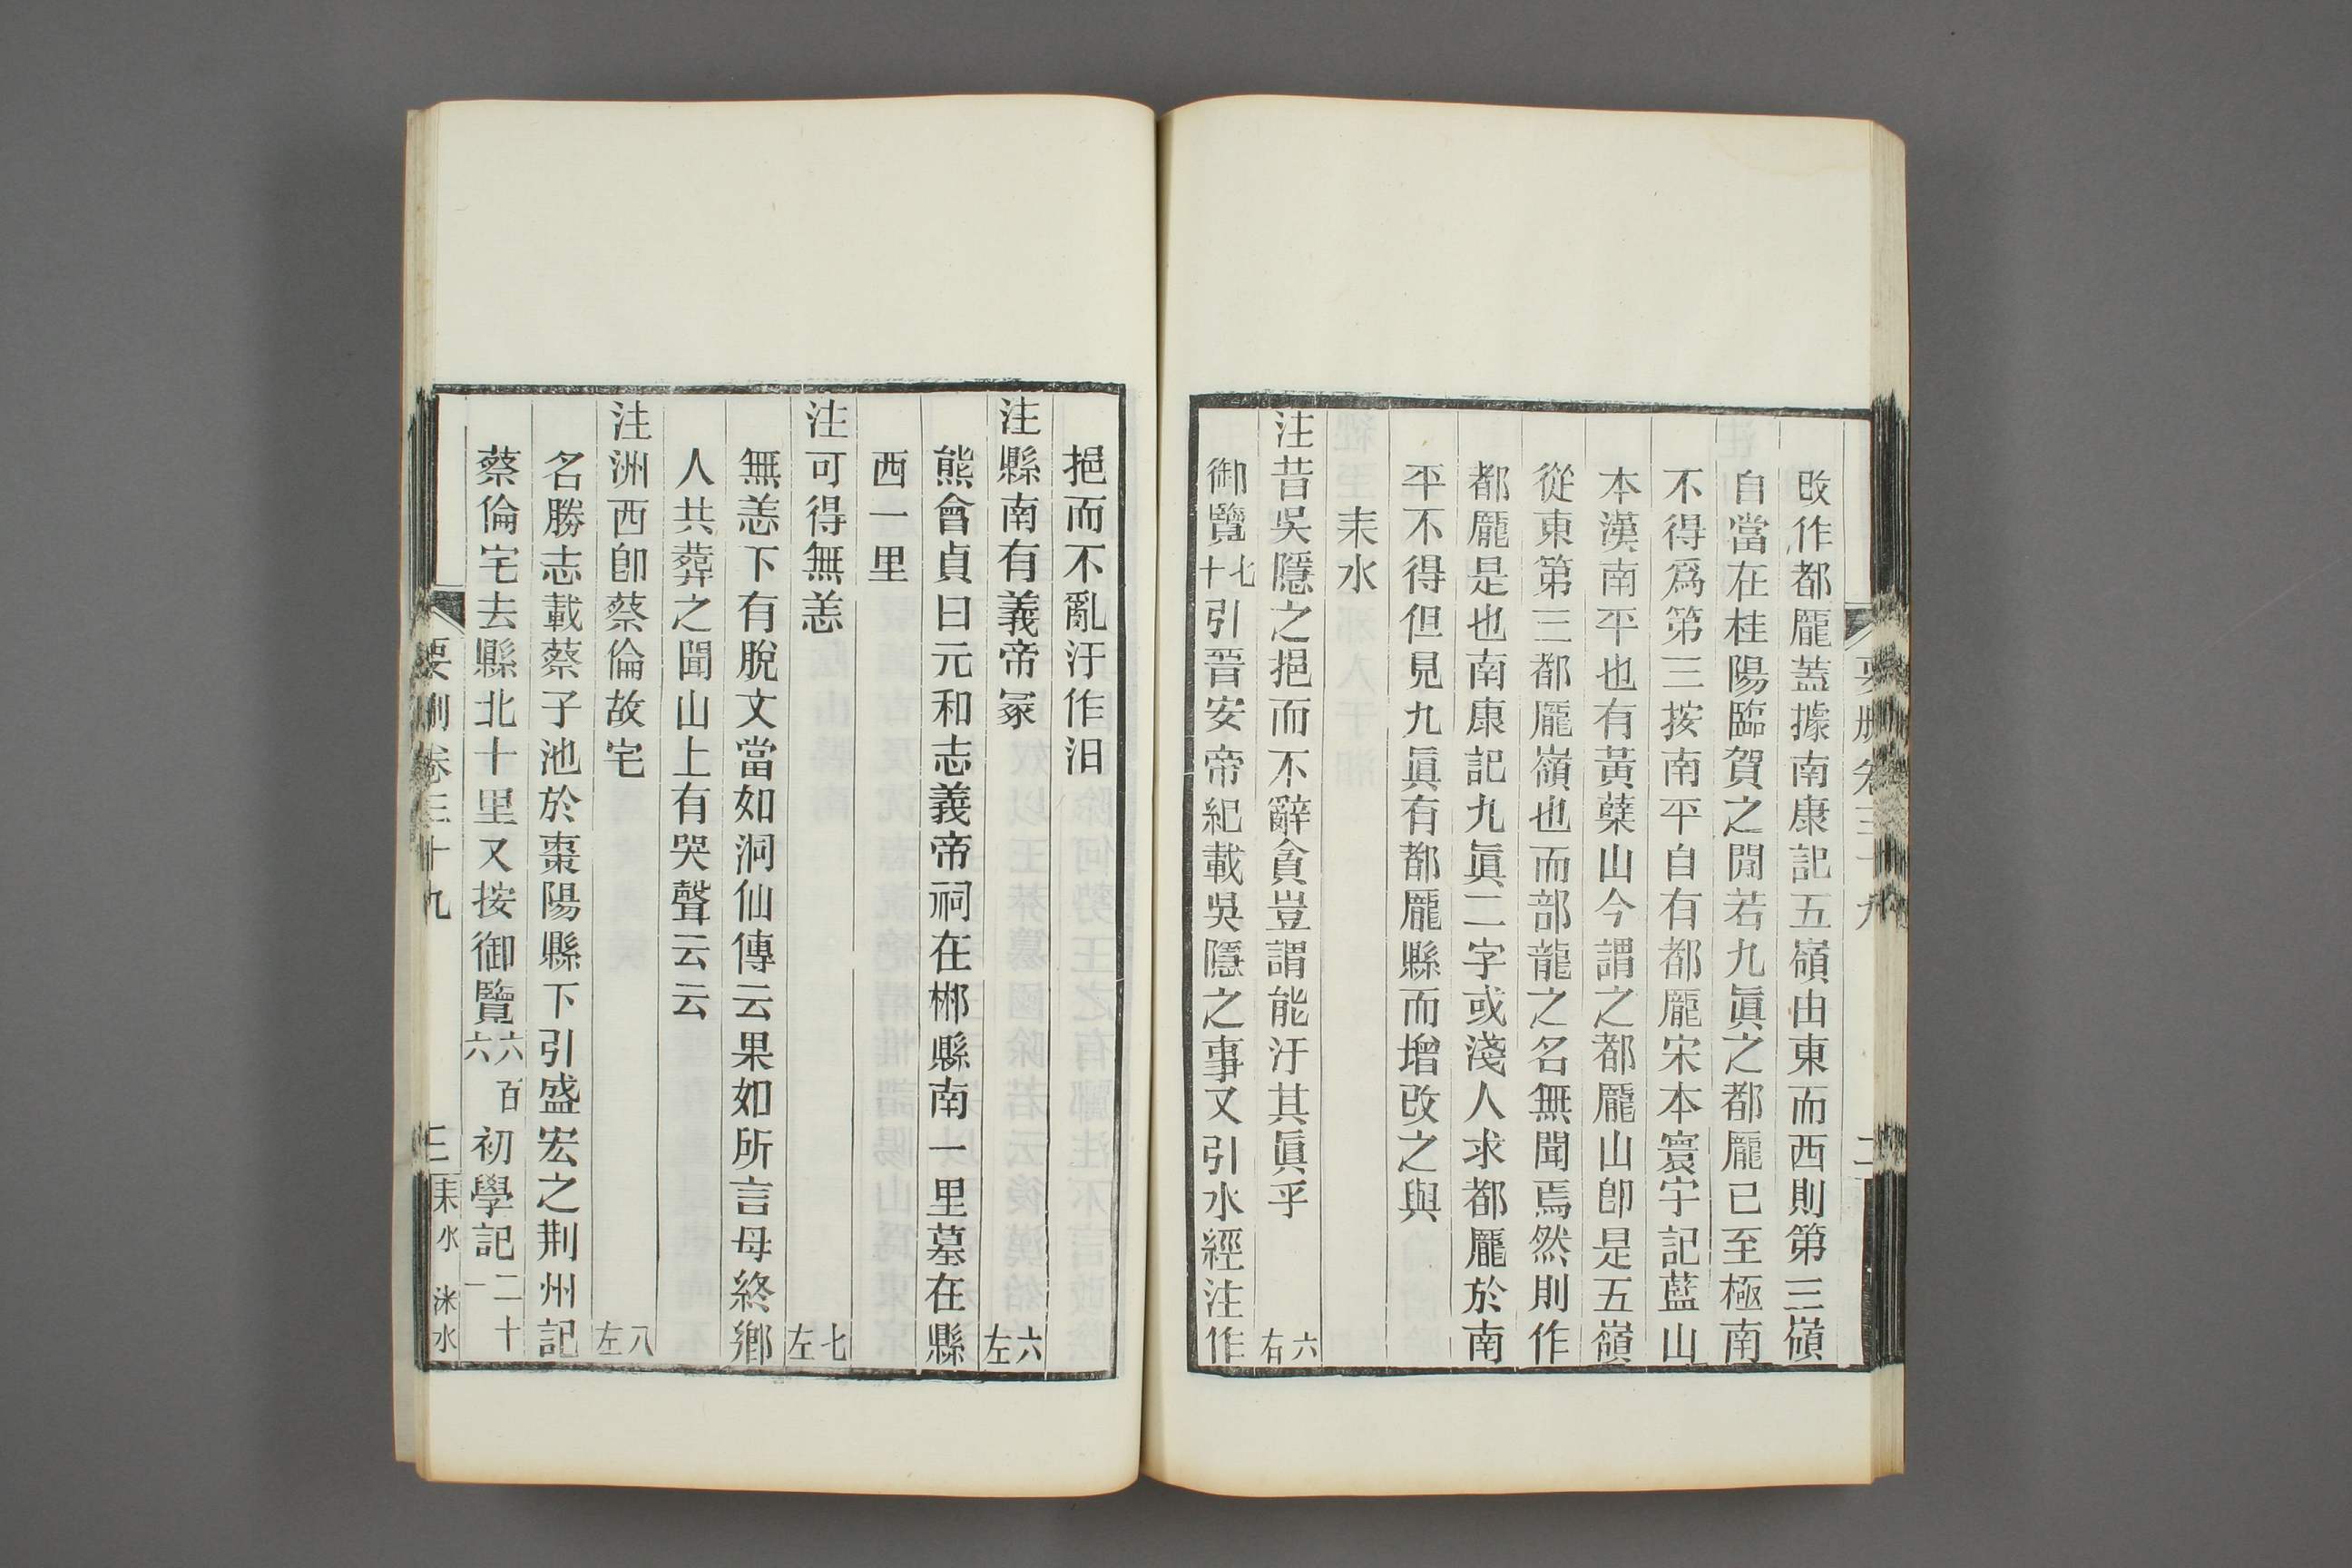 改作都龐蓋據南康記五嶺由東而西則第三嶺
自當在桂陽臨賀之閒若九眞之都龐已至極南
不得爲第三按南平自有都龐宋本寰宇記藍山
本漢南平也有黃蘗山今謂之都龐山卽是五嶺
從東第三都龐嶺也而部龍之名無聞焉然則作
都龐是也南康記九眞二字或淺人求都龐於南
平不得但見九眞有都龐縣而增改之與
耒水
注昔吳隱之挹而不辭貪豈謂能汙其眞乎 六右
御覽七十引晉安帝紀載吳隱之事又引水經注作
挹而不亂汙作汨
注縣南有義帝冢 六左
熊會貞曰元和志義帝祠在郴縣南一里墓在縣
西一里
注可得無恙 七左
無恙下有脫文當如洞仙傳云果如所言母終鄉
人共葬之聞山上有哭聲云云
注洲西卽蔡倫故宅 八左
名勝志載蔡子池於棗陽縣下引盛宏之荆州記
蔡倫宅去縣北十里又按御覽六百六初學記二十一
要刪卷三十九 三 耒水 洣水